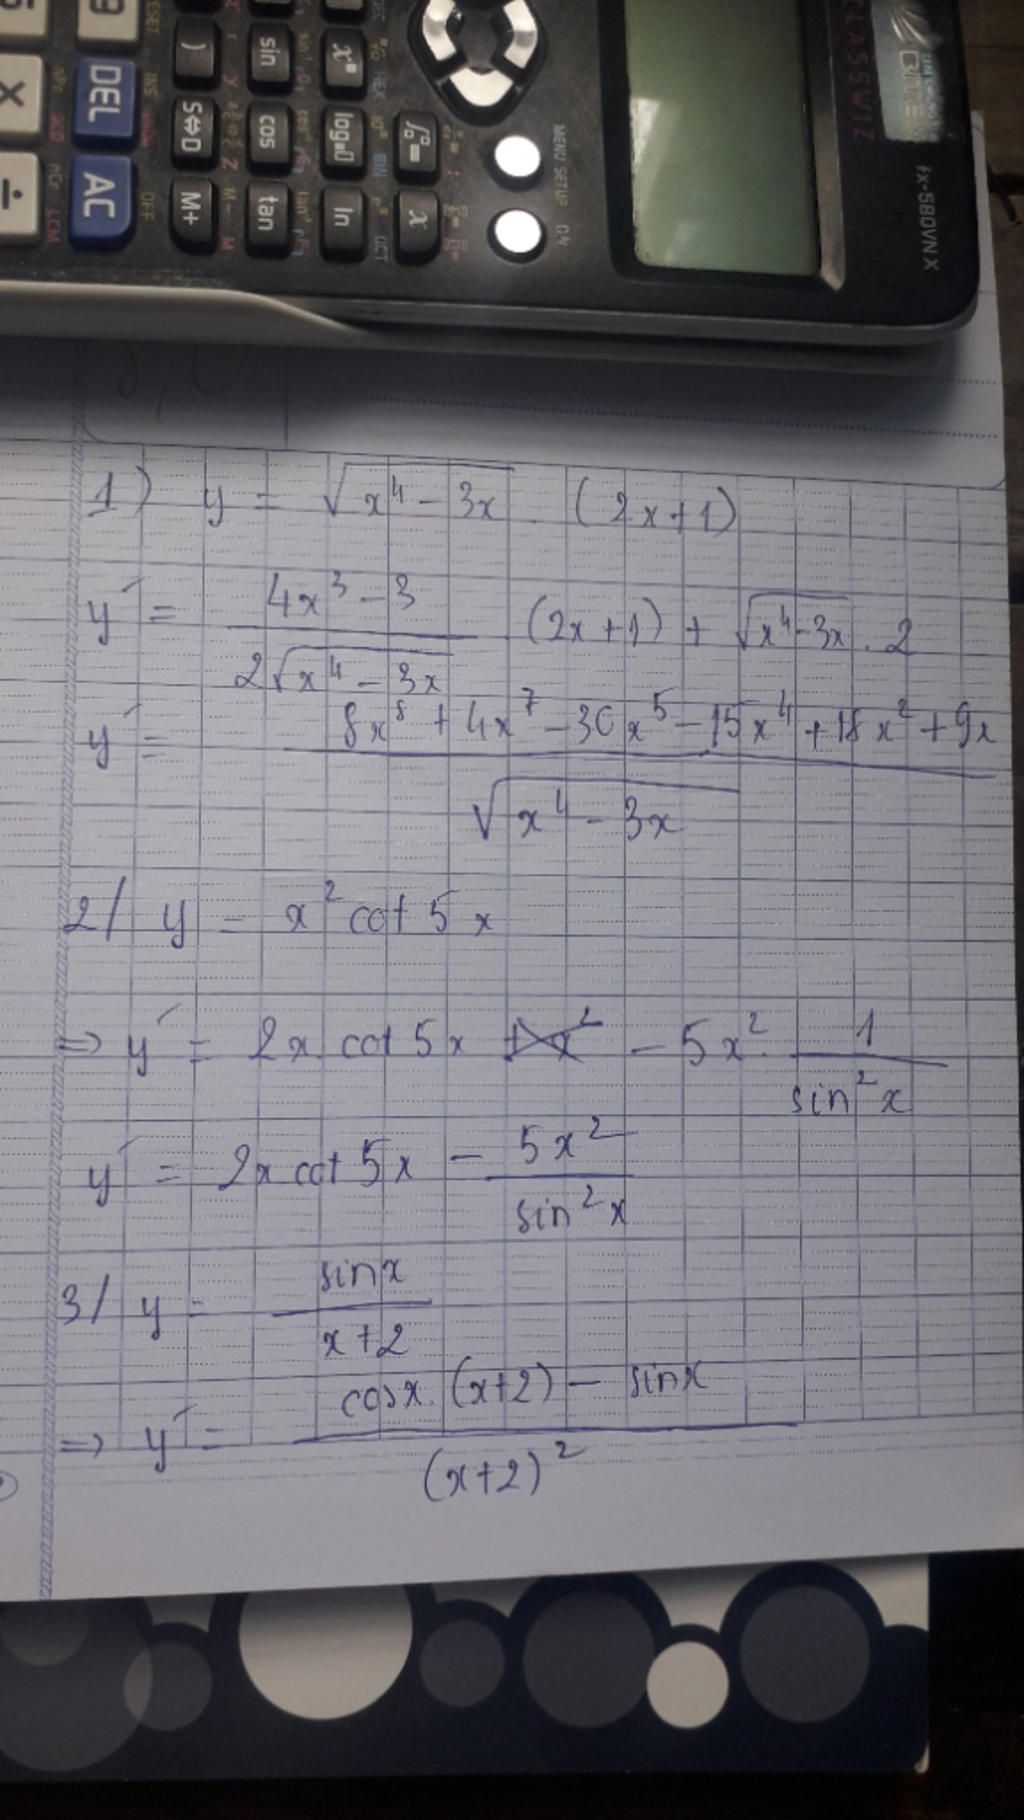 CLASSWIZ
fx-580VN X
MENU SETUP
ON
OFF
DEL
AC
sin
cos
tan
S⇔D
M+
ln
x
)
×
÷
1) y = √(x⁴ - 3x) . (2x+1)
y' = (4x³ - 3)/(2√(x⁴ - 3x)) (2x+1) + √(x⁴-3x) . 2
y' = (8x⁸ + 4x⁷ - 30x⁵ - 15x⁴ + 18x² + 9x)/√(x⁴ - 3x)
2/ y = x² cot 5x
=> y' = 2x. cot 5x - 5x². 1/(sin²x)
y' = 2x cot 5x - 5x²/(sin²x)
3/ y = sinx/(x+2)
=> y' = (cosx. (x+2) - sinx)/(x+2)²